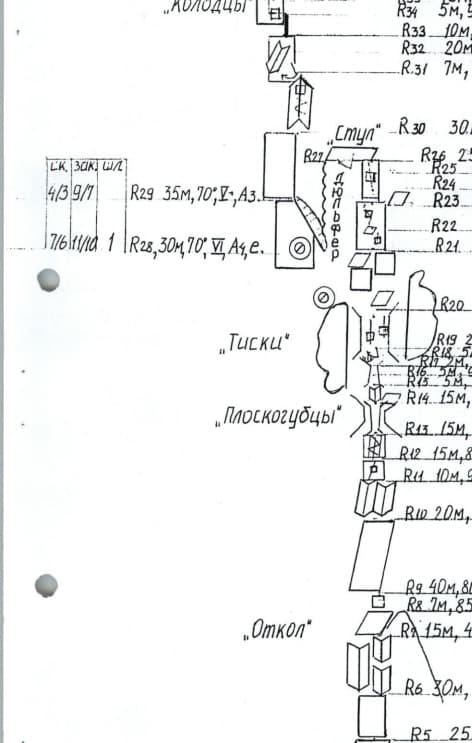 „КОЛОДЦЫ"
R34 5м,
R33 10м,
R32 20м
R.31 7м,
„Стул" R30 30
R27 R26 25
R25
R24
R23
R22
R21
ДЮЛЬФЕР
ск. зак. шл
4/3 9/7 R29 35м,70°,V+,А3.
7/6 11/10 1 R28,30м,70°,VI,А4,е.
R20
„Тиски"
R19 2
R18, 5
R17 2м,
R16 5м,
R15 5м,
R14 15м,
„Плоскогубцы"
R13 15м,
R12 15м,8
R11 10м,9
R10 20м,
R9 40м,80
R8 7м,85
„Откол"
R7 15м,4
R6 30м,
R5 25